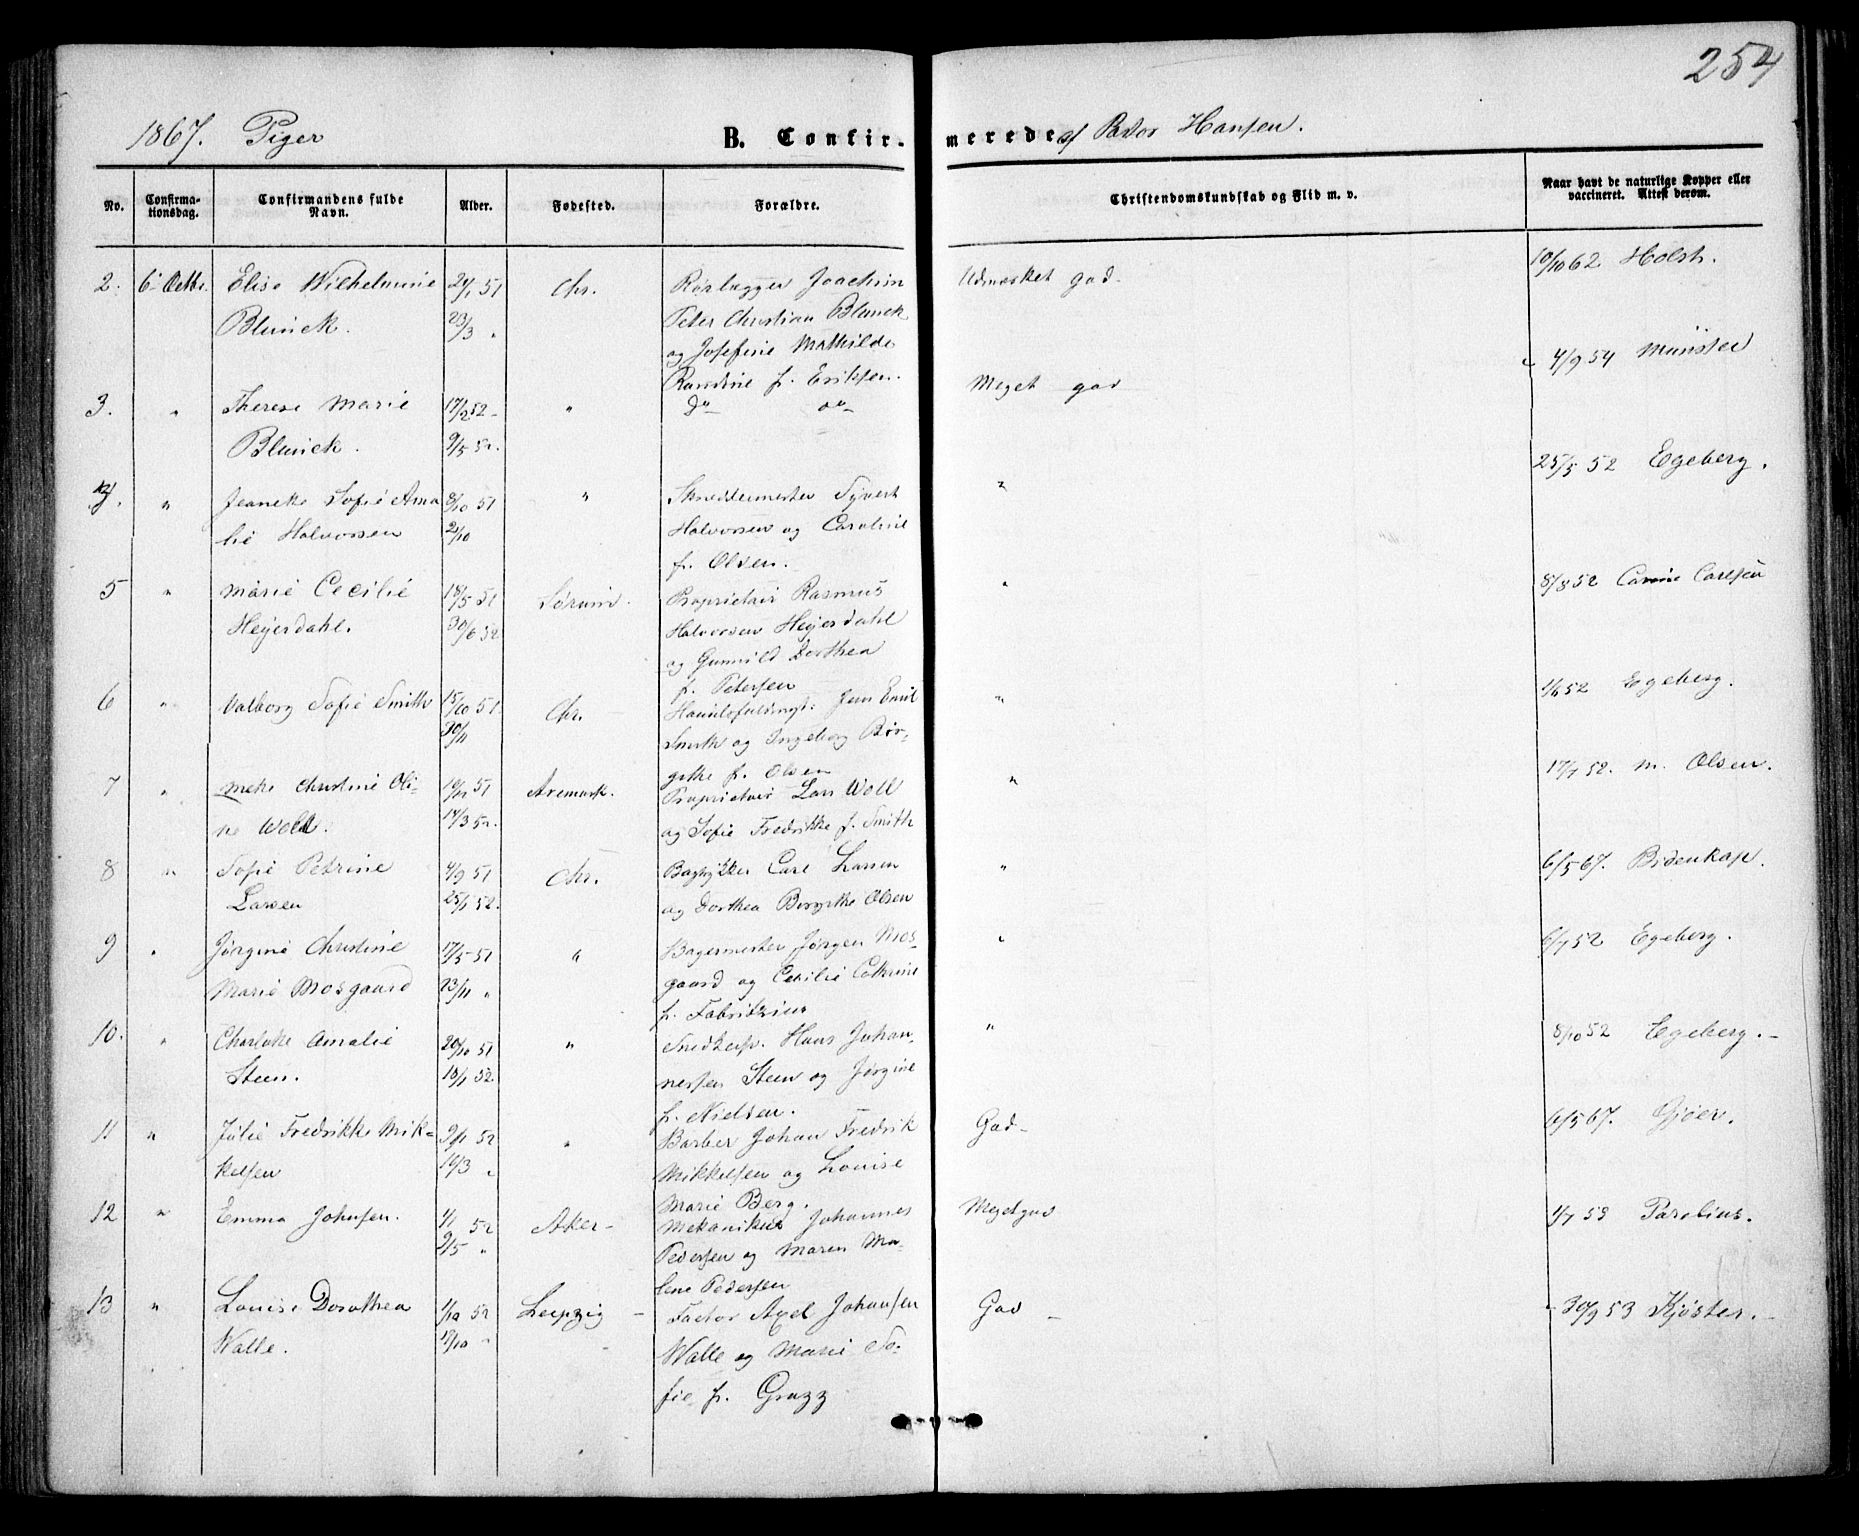 254
1867. Piger B. Confirmerede af Pastor Hansen.
No. Confirmationsdag. Confirmandens fulde Navn. Alder. Fødested. Forældre. Christendomskundskab og Flid m. v. Naar havt de naturlige Kopper eller vaccineret. Attest derom.
2. 6 Octbr. Elise Wilhelmine 24/1 51 Chr. Rørlægger Joachim Udmærket god. 10/10 62 Holst.
Blunck. 23/3 " Peter Christian Blunck
og Josefine Mathilde
Randine f. Eriksen.
3. " Therese Marie 17/2 52 " do do Meget god 4/9 54 Münster
Blunck. 9/5 52.
4. " Jeanette Sofie Ama 8/10 51 " Skreddermester Syvert " 25/5 52 Egeberg.
lie Halvorsen 2/10 Halvorsen og Caroline
f. Olsen.
5 " Marie Cecilie 18/5 51 Sørum. Proprietair Rasmus " 8/8 52 Carlsen
Heyerdahl. 30/6 52 Halvorsen Heyerdahl
og Gunnild Dorthea
f. Petersen
6 " Valborg Sofie Smith 15/10 51 Chr. Jens Emil " 1/6 52 Egeberg.
30/11 Smith og Ingeborg Bir-
gitte f. Olsen
7 " Mette Christine Oli- 51 Aremark. Proprietair Lars Woll " 17/7 52. M. Olsen.
ne Woll. 14/3 52. og Sofie Fredrikke f. Smith
8 " Sofie Petrine 4/9 51 Chr. Carl Larsen " 6/5 67. Bidenkap.
Larsen 25/1 52. og Dorthea Birgitte Olsen
9 " Jørgine Christine 17/5 51 " Bagermester Jørgen Mos- " 6/7 52 Egeberg.
Marie Mosgaard 23/11 " gaard og Cecilie Cathrine
f. Fabritzius
10. " Charlotte Amalie 20/10 51 " Snedkersv. Hans Johan- " 8/10 52 Egeberg.
Steen. 18/1 52. nessen Steen og Jørgine
f. Nielsen.
11 " Julie Fredrikke Mik- 9/1 52 " Barber Johan Fredrik God 6/5 67. Gjør.
kelsen 14/3 " Mikkelsen og Louise
Marie Berg.
12 " Emma Johnsen. 1/1 52 Aker Mekanikus Johannes Meget god 1/7 53
9/5 " Pedersen og Maren Ma-
lene Pedersen
13 " Louise Dorothea 1/10 52 Leipzig Factor Axel Johansen God 30/9 53 Kjøster.
Walle. 17/10 " Walle og Marie So-
fie f. Grazz